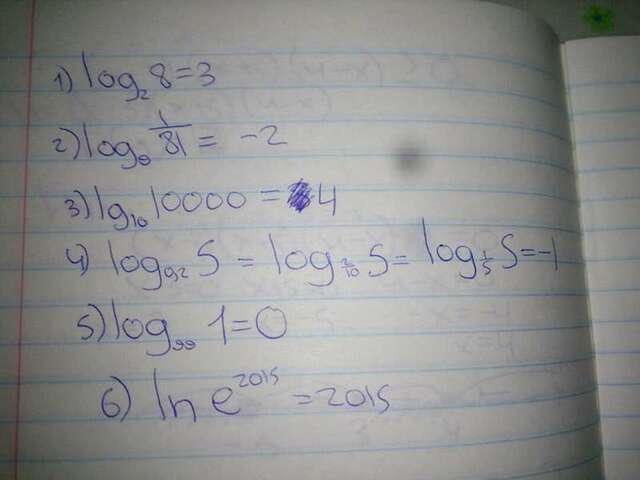 1) log₂ 8 = 3
2) log₉ 1/81 = -2
3) lg₁₀ 10000 = 4
4) log₀,₂ 5 = log₂/₁₀ 5 = log₁/₅ 5 = -1
5) log₉₉ 1 = 0
6) ln e²⁰¹⁵ = 2015